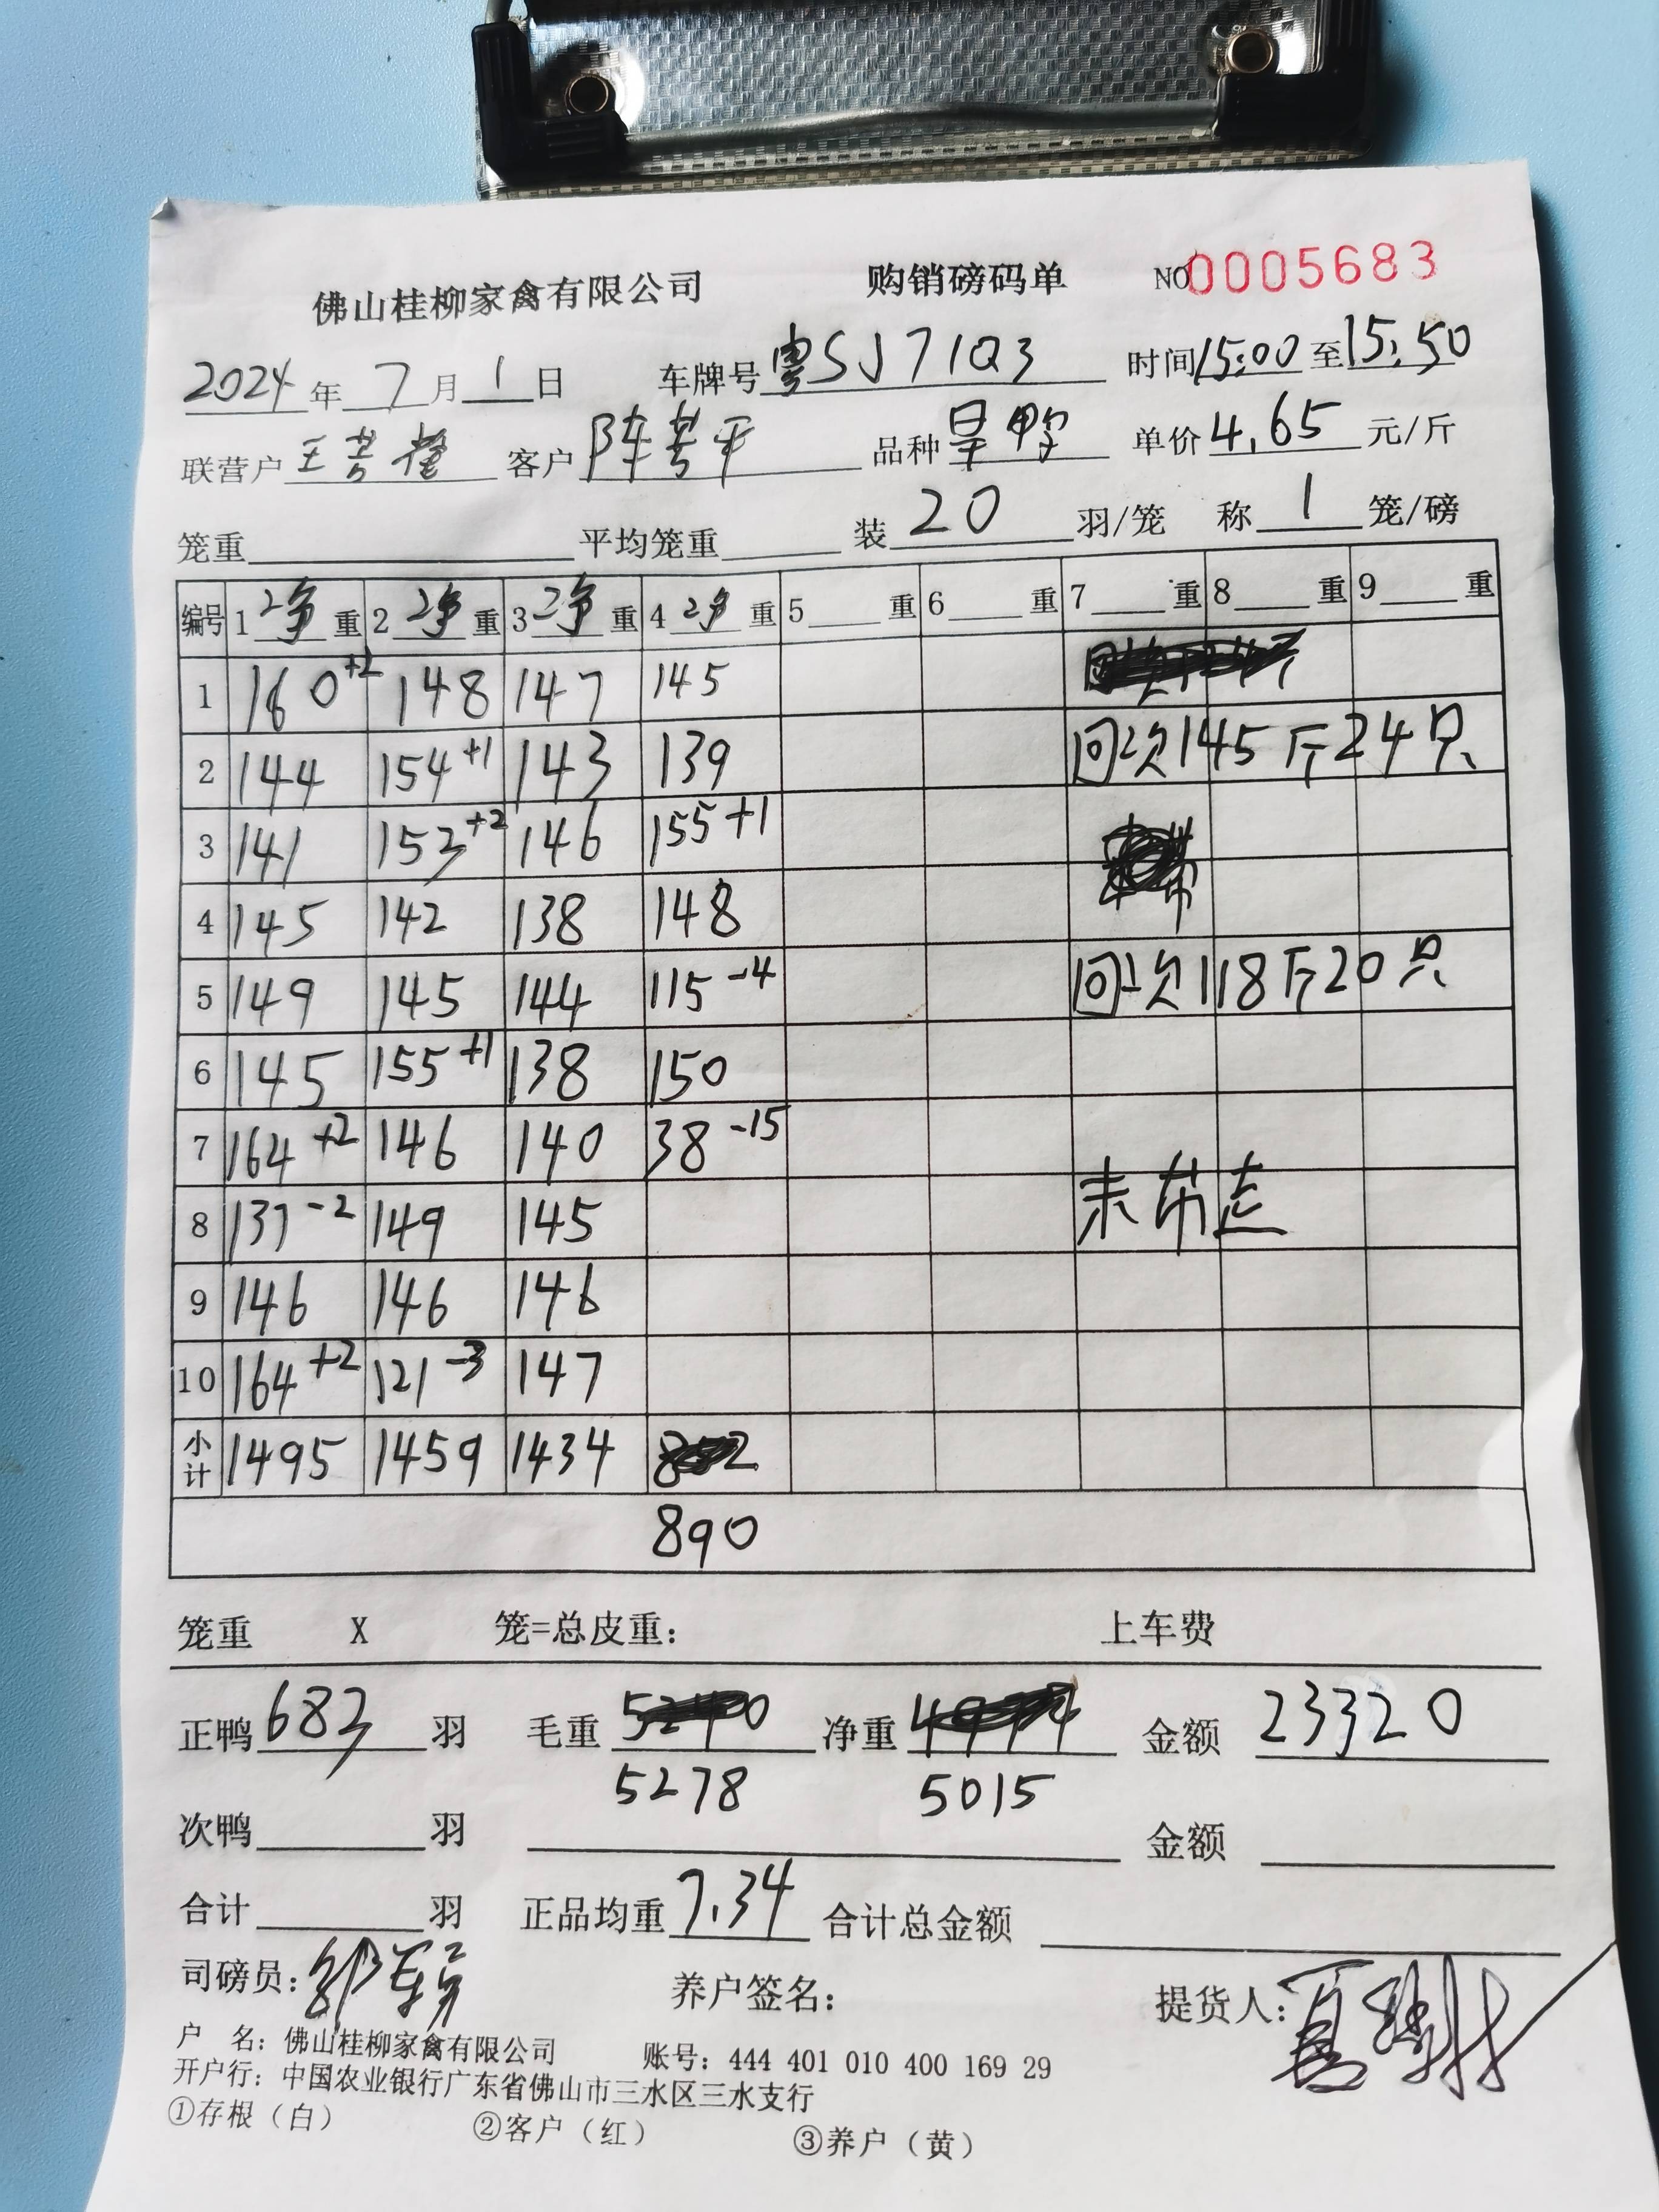 佛山桂柳家禽有限公司 购销磅码单 NO0005683
2024年7月1日 车牌号粤SJ71Q3 时间15:00至15:50
联营户王 客户陈 平 品种旱鸭 单价4.65元/斤
笼重 平均笼重 装20羽/笼 称1笼/磅
编号 1净重 2净重 3净重 4净重 5重 6重 7重 8重 9重
1 160+2 148 147 145
2 144 154+1 143 139 回次145斤24只
3 141 153+2 146 155+1
4 145 142 138 148
5 149 145 144 115-4 回次118斤20只
6 145 155+1 138 150
7 164+2 146 140 38-15
8 137-2 149 145 未 布
9 146 146 146
10 164+2 121-3 147
小计 1495 1459 1434
890
笼重 X 笼=总皮重: 上车费
正鸭683羽 毛重 净重 金额23320
5278 5015
次鸭 羽 金额
合计 羽 正品均重7.34 合计总金额
司磅员: 养户签名: 提货人:
户 名: 佛山桂柳家禽有限公司 账号: 444 401 010 400 169 29
开户行: 中国农业银行广东省佛山市三水区三水支行
①存根（白） ②客户（红） ③养户（黄）